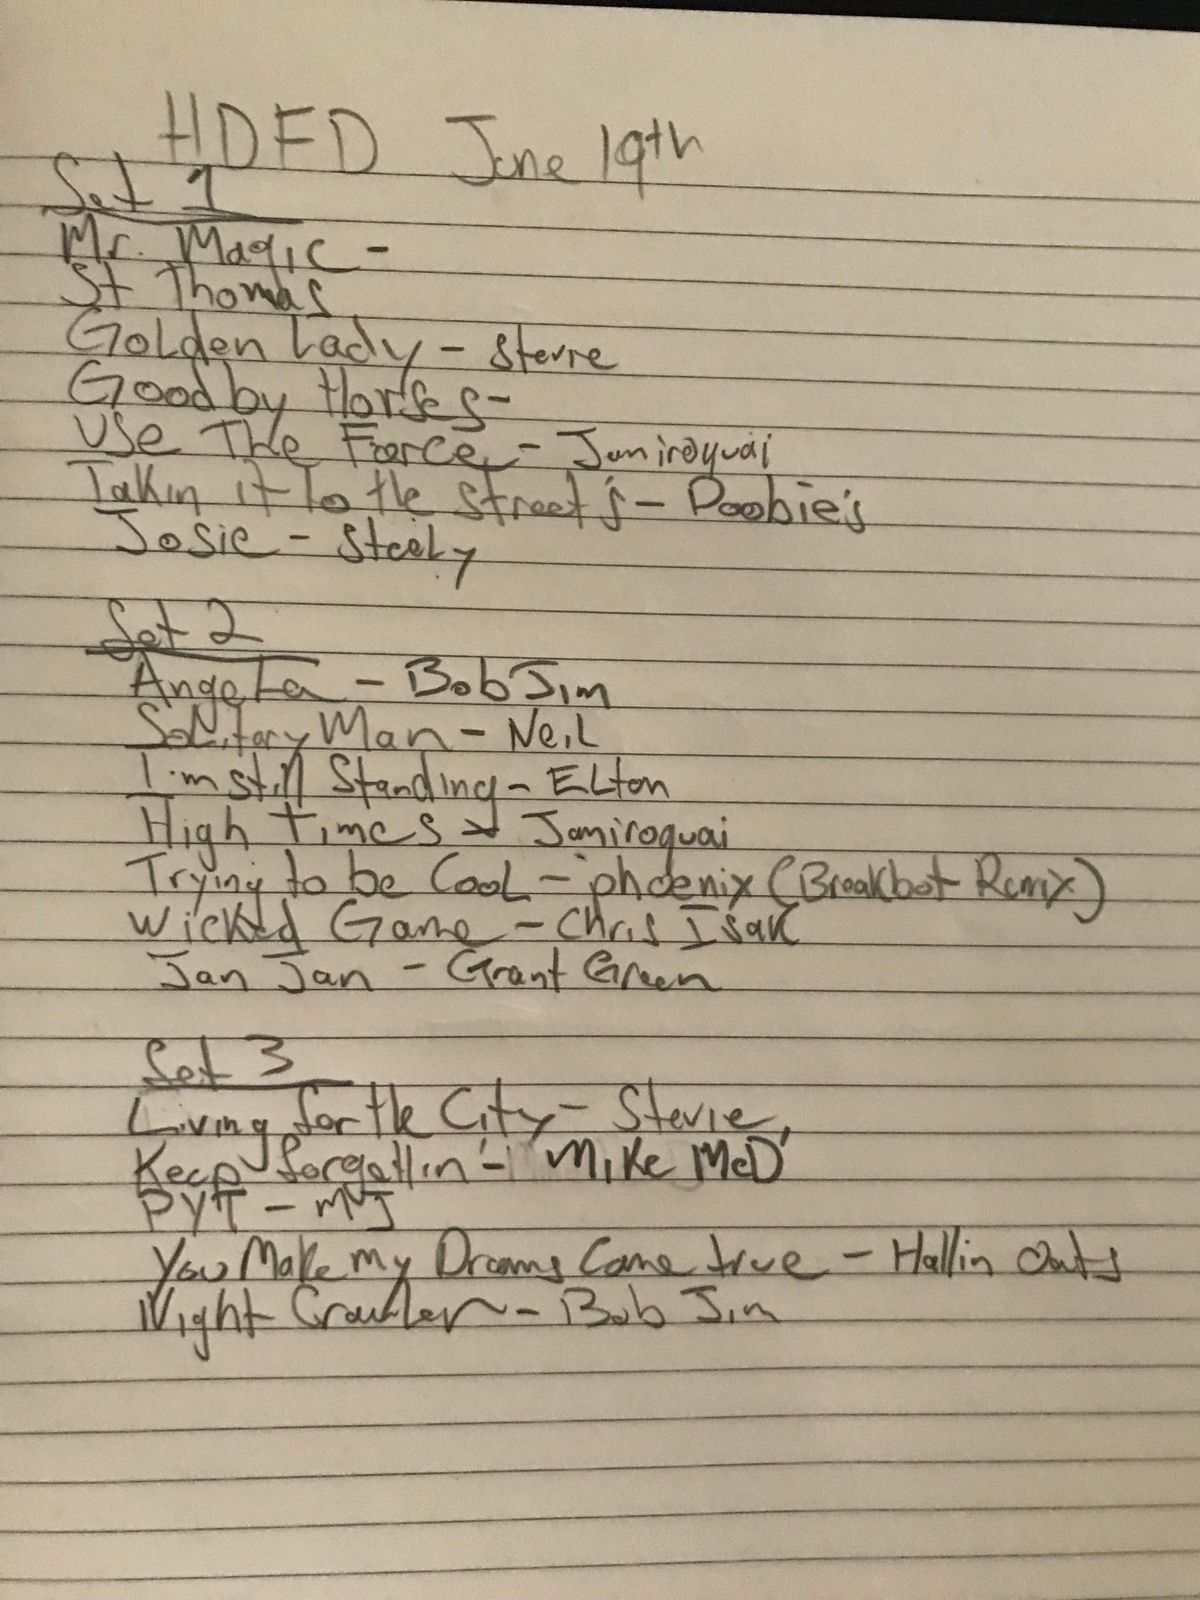 HDFD June 19th
Set 1
Mr. Magic -
St Thomas
Golden Lady - Stevie
Good by Horses -
Use The Force - Jamiroquai
Takin it To the Street's - Doobie's
Josie - Steely
Set 2
Angela - Bob Jim
Solitary Man - Neil
I'm still Standing - Elton
High Times - Jamiroquai
Trying to be Cool - phoenix (Breakbot Remix)
Wicked Game - Chris Isak
Jan Jan - Grant Green
Set 3
Living for the City - Stevie
Keep forgettin' - Mike McD
PYT - MJ
You Make my Dreams Come true - Hallin Oats
Night Crawler - Bob Jim